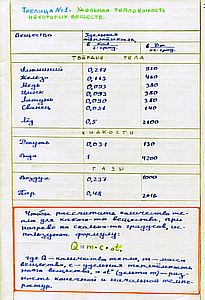 Таблица №1. Удельная теплоёмкость
некоторых веществ.
Вещество Удельная
теплоёмкость
ТВЁРДЫЕ ТЕЛА
Алюминий 0,217 920
Железо 0,113 460
Медь 0,093 380
Цинк 0,093 380
Латунь 0,090 380
Свинец 0,031 140
Лёд 0,5 2100
ЖИДКОСТИ
Ртуть 0,031 130
Вода 1 4200
ГАЗЫ
Воздух 0,237 1000
Пар 0,48 2016
Чтобы рассчитать количество те-
пла для какого-то вещества, при
нагреве на сколько-то градусов, ис-
пользуют формулу:
Q=m·c·Δt,
где Q - количество тепла, m - масса
вещества, c - удельная теплоёмкость
этого вещества, а Δt (дельта t) - раз-
ность конечной и начальной темпе-
ратур.